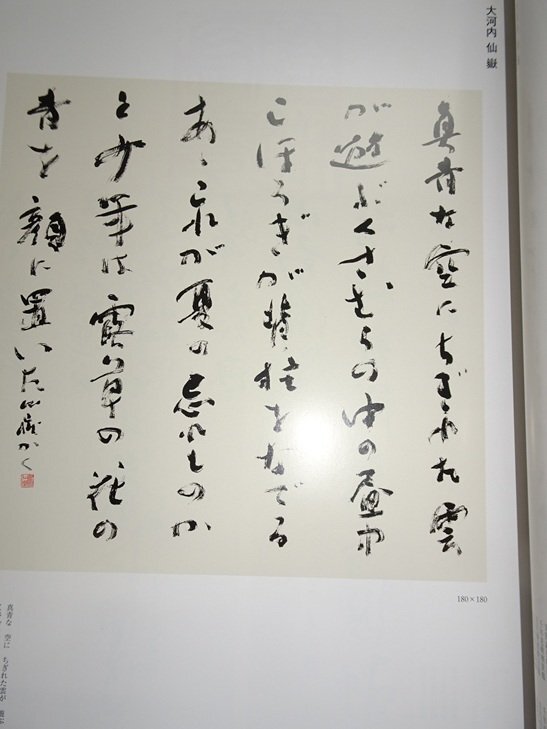 大河内 仙嶽
真青な空にちぎれた雲
が遊ぶくさむらの中の昼
こほろぎが をなでる
あゝこれが夏の忘れものか
と少年は露草の花の
青を顔に置いた 仙嶽かく
180×180
真青な 空に ちぎれた雲が 遊ぶ